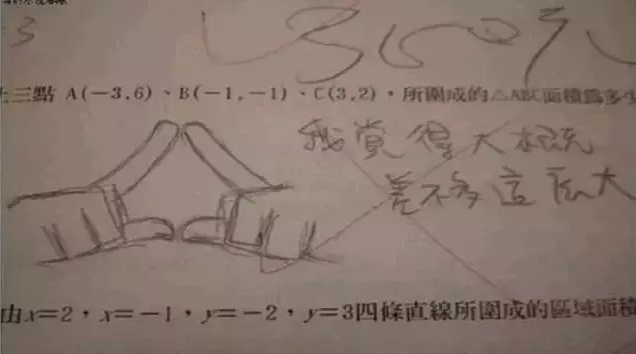 3
上三點 A(-3,6)、B(-1,-1)、C(3,2),所圍成的△ABC面積為多少
我覺得大概
差不多這麼大
由x=2,x=-1,y=-2,y=3四條直線所圍成的區域面積